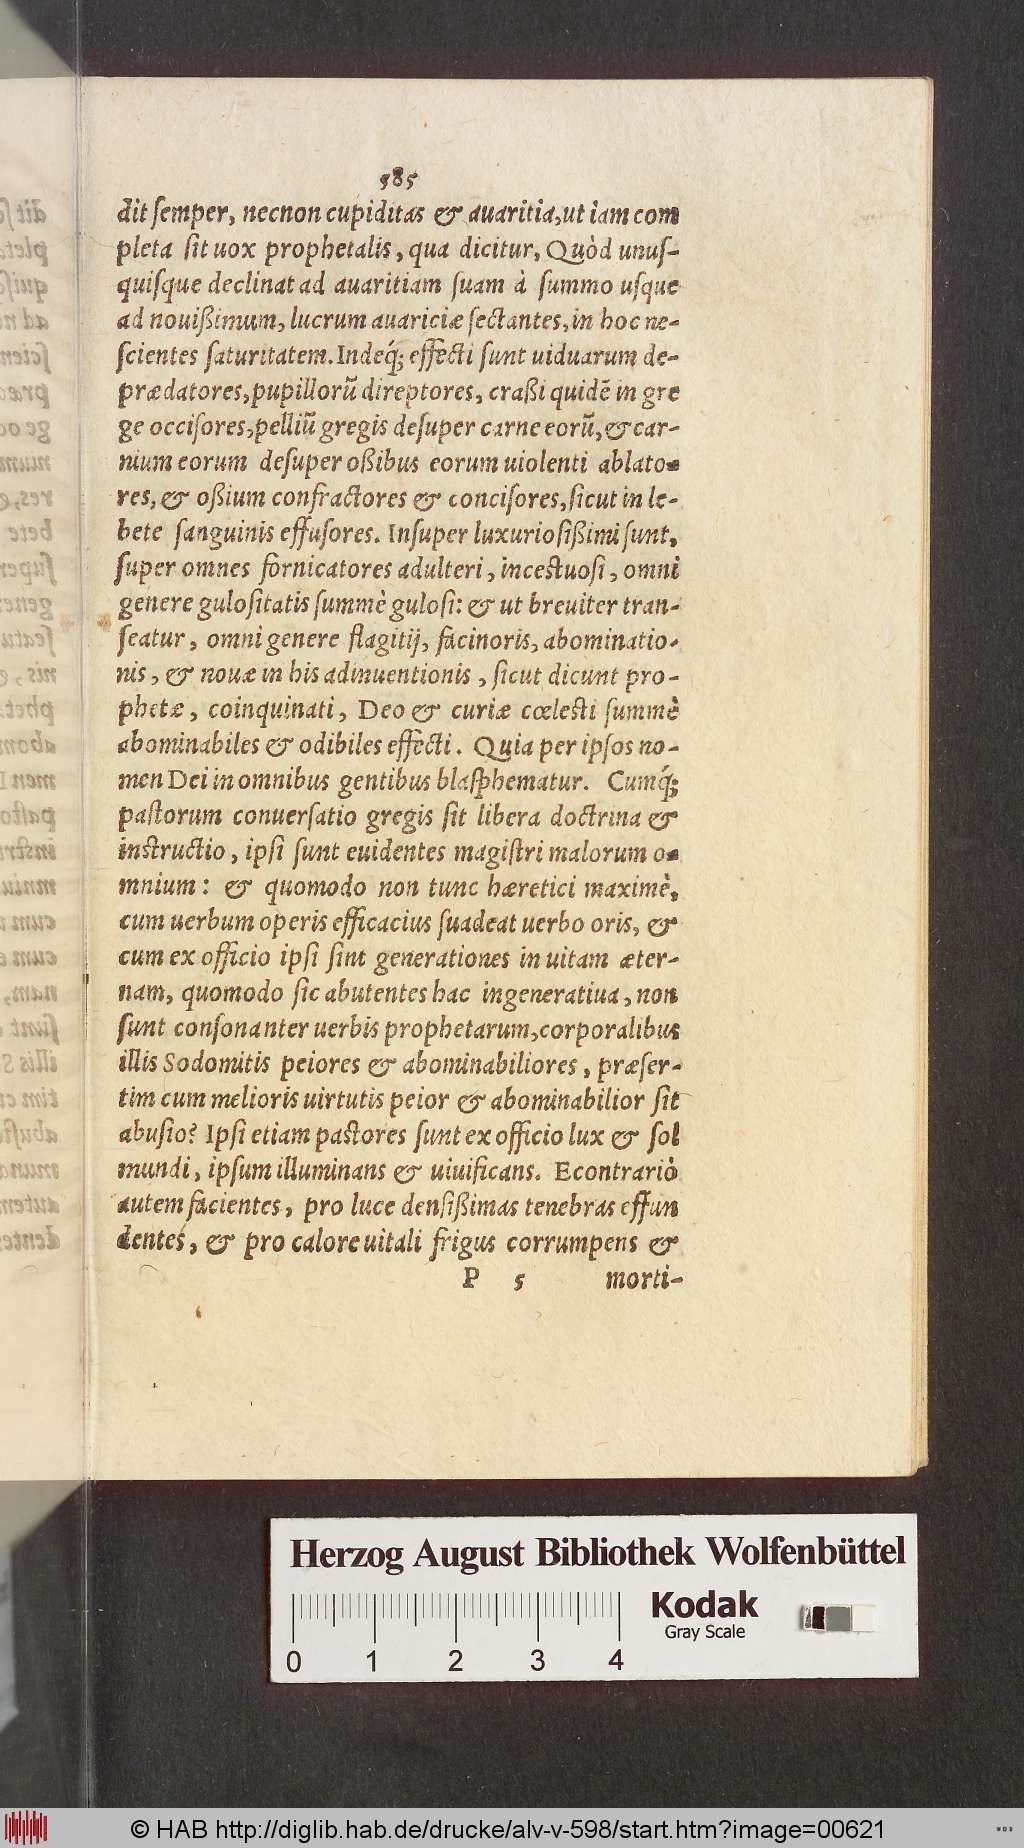 585
dit ſemper, necnon cupiditas & auaritia, ut iam com
pleta ſit uox prophetalis, qua dicitur, Quòd unuſ-
quiſque declinat ad auaritiam ſuam à ſummo uſque
ad nouißimum, lucrum auariciæ ſectantes, in hoc ne-
ſcientes ſaturitatem. Indeq́; effecti ſunt uiduarum de-
prædatores, pupillorũ direptores, craßi quidẽ in gre
ge occiſores, pelliũ gregis deſuper carne eorũ, & car-
nium eorum deſuper oßibus eorum uiolenti ablato-
res, & oßium confractores & conciſores, ſicut in le-
bete ſanguinis effuſores. Inſuper luxurioſißimi ſunt,
ſuper omnes fornicatores adulteri, inceſtuoſi, omni
genere guloſitatis ſummè guloſi: & ut breuiter tran-
ſeatur, omni genere flagitij, facinoris, abominatio-
nis, & nouæ in his adinuentionis, ſicut dicunt pro-
phetæ, coinquinati, Deo & curiæ cœleſti ſummè
abominabiles & odibiles effecti. Quia per ipſos no-
men Dei in omnibus gentibus blaſphematur. Cumq́;
paſtorum conuerſatio gregis ſit libera doctrina &
inſtructio, ipſi ſunt euidentes magiſtri malorum o-
mnium: & quomodo non tunc hæretici maximè,
cum uerbum operis efficacius ſuadeat uerbo oris, &
cum ex officio ipſi ſint generationes in uitam æter-
nam, quomodo ſic abutentes hac ingeneratiua, non
ſunt conſonanter uerbis prophetarum, corporalibus
illis Sodomitis peiores & abominabiliores, præſer-
tim cum melioris uirtutis peior & abominabilior ſit
abuſio? Ipſi etiam paſtores ſunt ex officio lux & ſol
mundi, ipſum illuminans & uiuificans. Econtrariò
autem facientes, pro luce denſißimas tenebras effun
dentes, & pro calore uitali frigus corrumpens &
P 5 morti-
Herzog August Bibliothek Wolfenbüttel
Kodak
Gray Scale
0 1 2 3 4
© HAB http://diglib.hab.de/drucke/alv-v-598/start.htm?image=00621